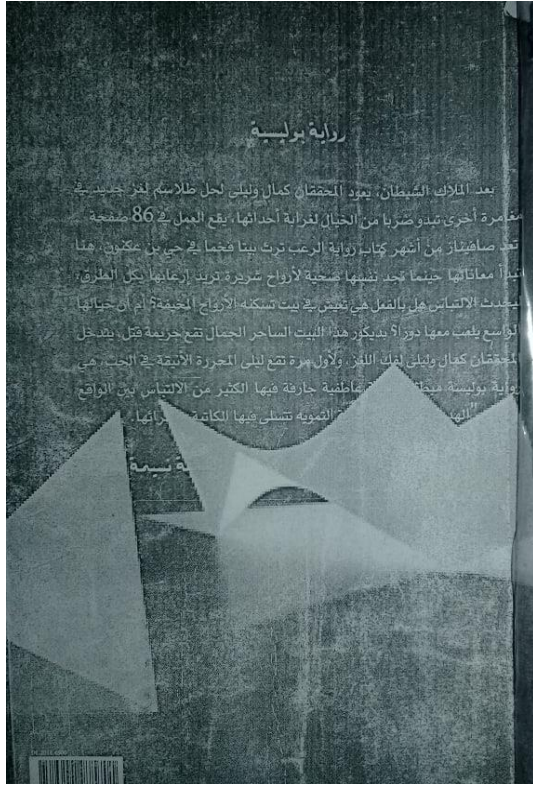 رواية بوليسية
بعد الملاك الشيطان، يعود المحققان كمال وليلى لحل طلاسم لغز جديد في
مغامرة أخرى تبدو ضربا من الخيال لغرابة أحداثها، يقع العمل في 86 صفحة
تعد صافيناز من أشهر كتاب رواية الرعب ترث بيتا فخما في حي بن عكنون، هنا
تبدأ معاناتها حينما تجد نفسها ضحية لأرواح شريرة تريد إرعابها بكل الطرق،
ليحدث الالتباس هل بالفعل هي تعيش في بيت تسكنه الأرواح المخيفة؟ أم أن خيالها
الواسع يلعب معها دورا؟ بديكور هذا البيت الساحر الجمال تقع جريمة قتل، يتدخل
المحققان كمال وليلى لفك اللغز، ولأول مرة تقع ليلى المحررة الأنيقة في الحب، هي
رواية بوليسة عاطفية جارفة فيها الكثير من الالتباس بين الواقع
التمويه تتسلى فيها الكاتبة
نسيمة